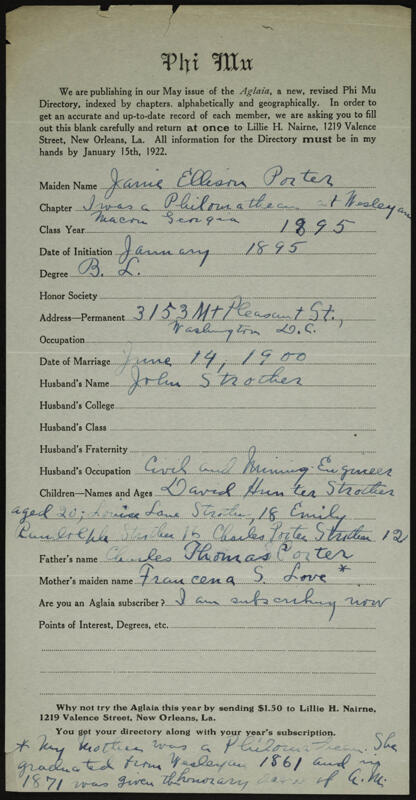 Phi Mu
We are publishing in our May issue of the Aglaia, a new, revised Phi Mu
Directory, indexed by chapters. alphabetically and geographically. In order to
get an accurate and up-to-date record of each member, we are asking you to fill
out this blank carefully and return at once to Lillie H. Nairne, 1219 Valence
Street, New Orleans, La. All information for the Directory must be in my
hands by January 15th, 1922.
Maiden Name Janie Ellison Porter
Chapter I was a Philomathean at Wesleyan
Macon Georgia
Class Year 1895
Date of Initiation January 1895
Degree B. L.
Honor Society
Address—Permanent 3153 Mt Pleasant St.,
Washington D.C.
Occupation
Date of Marriage June 14, 1900
Husband's Name John Strother
Husband's College
Husband's Class
Husband's Fraternity
Husband's Occupation Civil and Mining Engineer
Children—Names and Ages David Hunter Strother
aged 20; Louise Lane Strother, 18 Emily
Randolph Strother 16 Charles Porter Strother 12
Father's name Charles Thomas Porter
Mother's maiden name Francena S. Love *
Are you an Aglaia subscriber? I am subscribing now
Points of Interest, Degrees, etc.
Why not try the Aglaia this year by sending $1.50 to Lillie H. Nairne,
1219 Valence Street, New Orleans, La.
You get your directory along with your year's subscription.
* My mother was a Philomathean. She
graduated from Wesleyan 1861 and in
1871 was given the honorary of A.M.